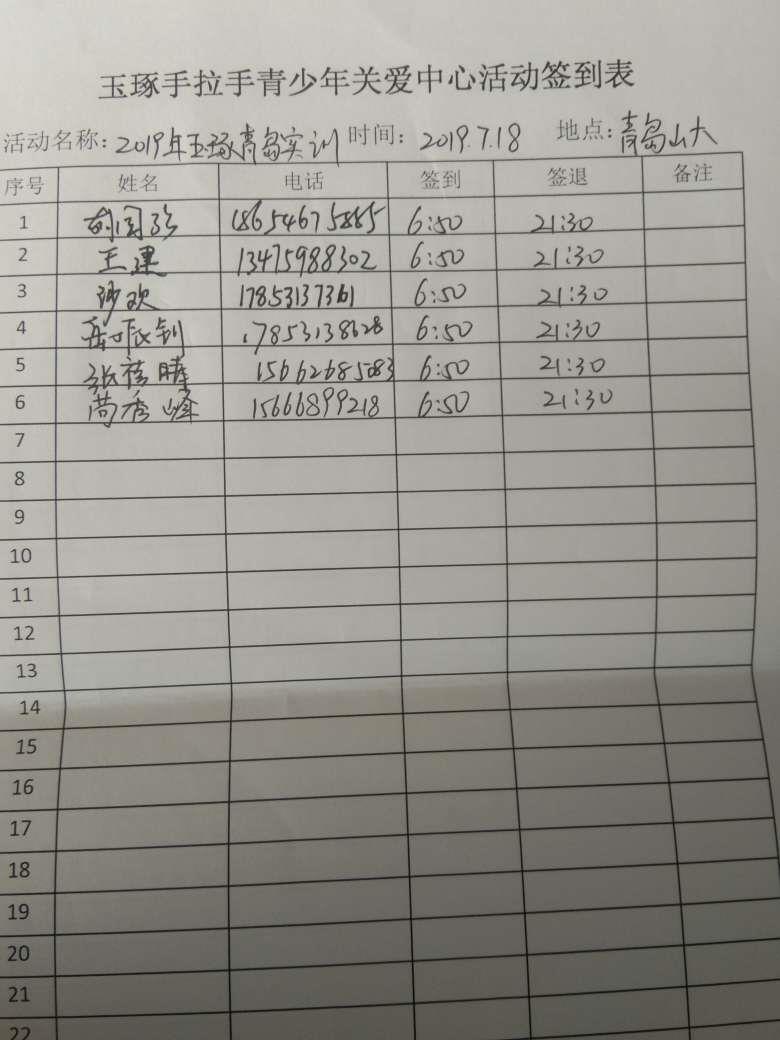 玉琢手拉手青少年关爱中心活动签到表
活动名称: 2019年玉琢青岛实训 时间: 2019.7.18 地点: 青岛山大
序号 姓名 电话 签到 签退 备注
1 18654675885 6:50 21:30
2 王建 13475988302 6:50 21:30
3 沙欢 17853137361 6:50 21:30
4 17853138628 6:50 21:30
5 15662685083 6:50 21:30
6 尚秀峰 15666899218 6:50 21:30
7
8
9
10
11
12
13
14
15
16
17
18
19
20
21
22